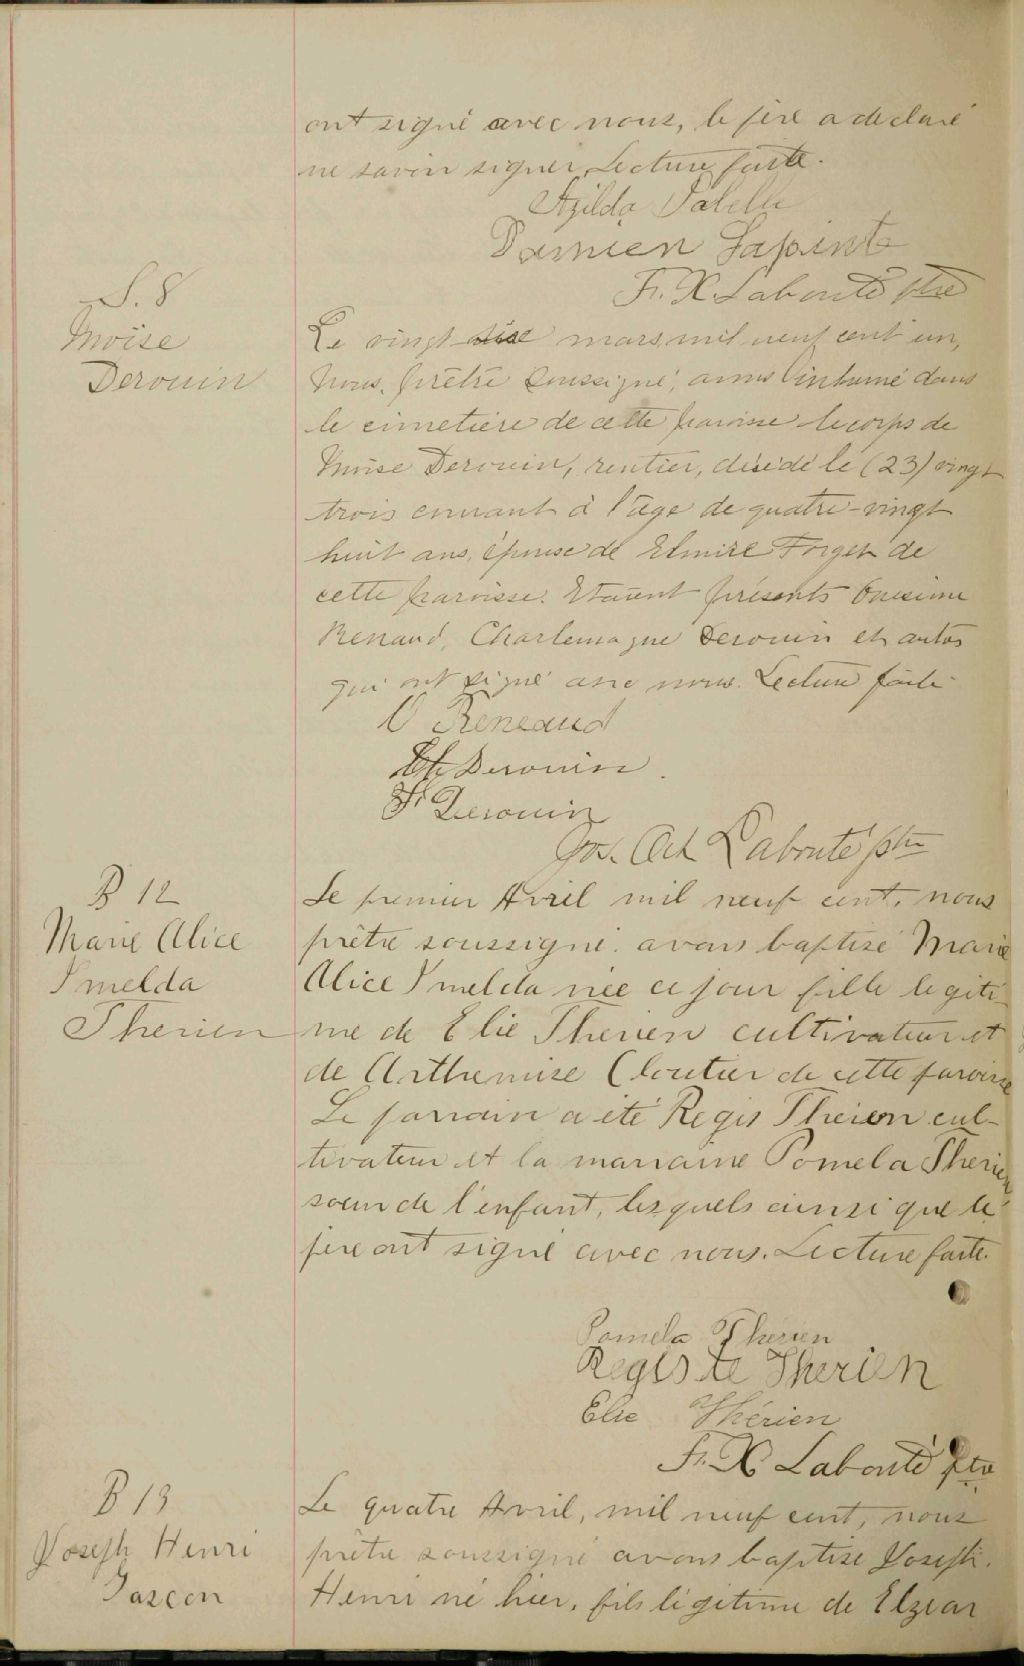 ont signé avec nous, le père a déclaré
ne savoir signer, Lecture faite.
Azilda Labelle
Damien Lapointe
F. X. Labonté ptre
S. 8
Moïse
Derouin
Le vingt six mars mil neuf cent un,
Nous, prêtre soussigné, avons inhumé dans
le cimetière de cette paroisse le corps de
Moïse Derouin, rentier, décédé le (23) vingt
trois courant à l'âge de quatre-vingt
huit ans, époux de Elmire Forget de
cette paroisse. Etaient présents Onésime
Renaud, Charlemagne Derouin et autres
qui ont signé avec nous. Lecture faite
O Reneaud
Ch Derouin.
Derouin
Jos. Labonté ptre
B 12
Marie Alice
Ymelda
Therien
Le premier Avril mil neuf cent, nous
prêtre soussigné, avons baptisé Marie
Alice Ymelda née ce jour fille legiti-
me de Elie Therien cultivateur et
de Arthemise Cloutier de cette paroisse
Le parrain a été Regis Therien cul-
tivateur et la marraine Pomela Therien
soeur de l'enfant, lesquels ainsi que le
père ont signé avec nous. Lecture faite.
Poméla Thérien
Regis te Therien
Elie Thérien
F. X Labonté ptre
B 13
Yoseph Henri
Gascon
Le quatre Avril, mil neuf cent, nous
prêtre soussigné avons baptisé Yoseph.
Henri né hier, fils légitime de Elzear